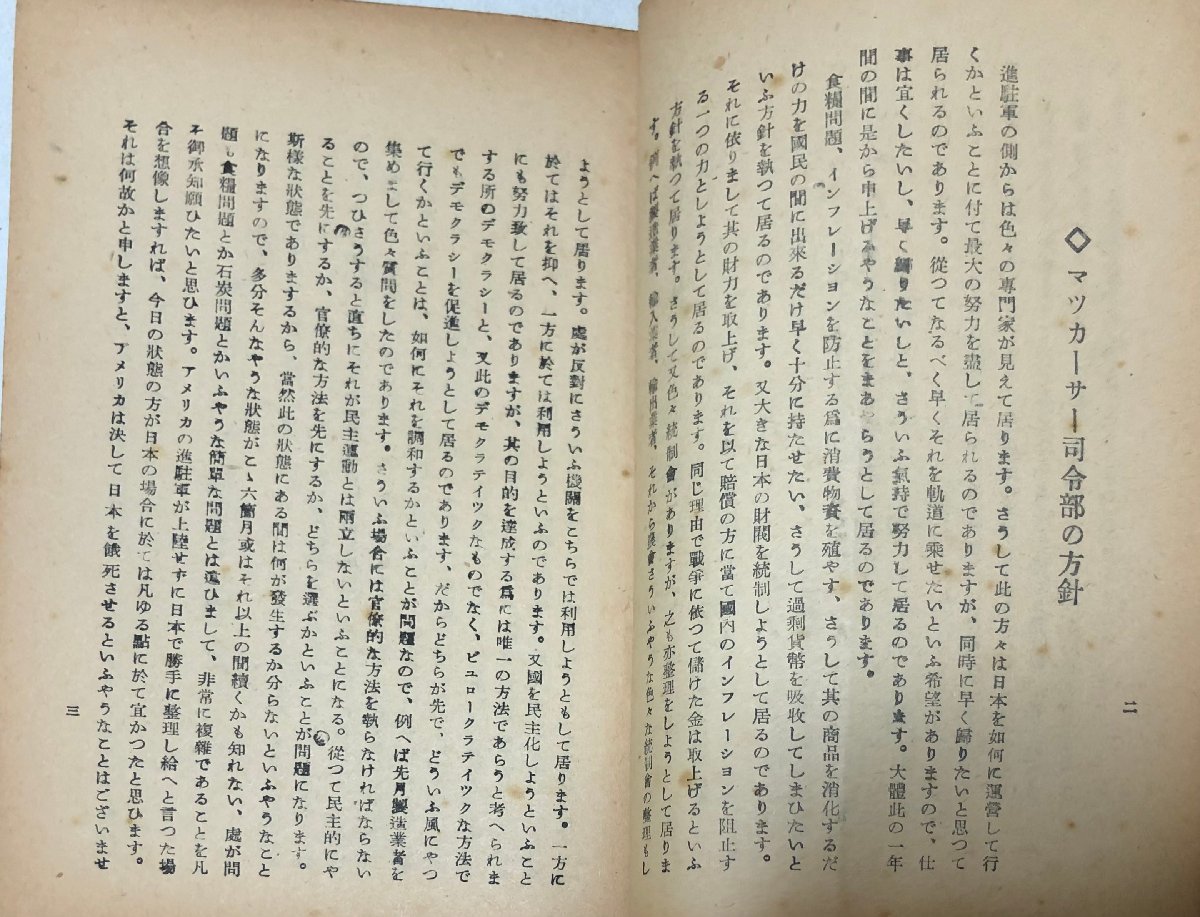 二
◇マツカーサー司令部の方針
進駐軍の側からは色々の専門家が見えて居ります。さうして此の方々は日本を如何に運營して行
くかといふことに付て最大の努力を盡して居られるのでありますが、同時に早く歸りたいと思つて
居られるのであります。從つてなるべく早くそれを軌道に乘せたいといふ希望がありますので、仕
事は宜くしたいし、早く歸りたいしと、さういふ氣持で努力して居るのであります。大體此の一年
間の間に是から申上げるやうなことをまあやらうとして居るのであります。
食糧問題、インフレーションを防止する爲に消費物資を殖やす、さうして其の商品を消化するだ
けの力を國民の間に出來るだけ早く十分に持たせたい、さうして過剩貨幣を吸收してしまひたいと
いふ方針を執つて居るのであります。又大きな日本の財閥を統制しようとして居るのであります。
それに依りまして其の財力を取上げ、それを以て賠償の方に當て國內のインフレーションを阻止す
る一つの力としようとして居るのであります。同じ理由で戰爭に依つて儲けた金は取上げるといふ
方針を執つて居ります。さうして又色々統制會がありますが、之も亦整理をしようとして居りま
す。例へば製造業者、輸入業者、輸出業者、それから統制會さういふやうな色々な統制會の整理もし
ようとして居ります。處が反對にさういふ機關をこちらでは利用しようともして居ります。一方に
於てはそれを抑へ、一方に於ては利用しようといふのであります。又國を民主化しようといふこと
にも努力致して居るのでありますが、其の目的を達成する爲には唯一の方法であらうと考へられま
する所のデモクラシーと、又此のデモクラテイツクなものでなく、ビユロークラテイツクな方法で
でもデモクラシーを促進しようとして居るのであります、だからどちらが先で、どういふ風にやつ
て行くかといふことは、如何にそれを調和するかといふことが問題なので、例へば先月製造業者を
集めまして色々質問をしたのであります。さういふ場合には官僚的な方法を執らなければならない
ので、つひさうすると直ちにそれが民主運動とは兩立しないといふことになる。從つて民主的にや
ることを先にするか、官僚的な方法を先にするか、どちらを選ぶかといふことが問題になります。
斯樣な狀態でありますから、當然此の狀態にある間は何が發生するか分らないといふやうなこと
になりますので、多分そんなやうな狀態がこゝ六箇月或はそれ以上の間續くかも知れない、處が問
題も食糧問題とか石炭問題とかいふやうな簡單な問題とは違ひまして、非常に複雜であることを凡
そ御承知願ひたいと思ひます。アメリカの進駐軍が上陸せずに日本で勝手に整理し給へと言つた場
合を想像しますれば、今日の狀態の方が日本の場合に於ては凡ゆる點に於て宜かつたと思ひます。
それは何故かと申しますと、アメリカは決して日本を餓死させるといふやうなことはございませ
三